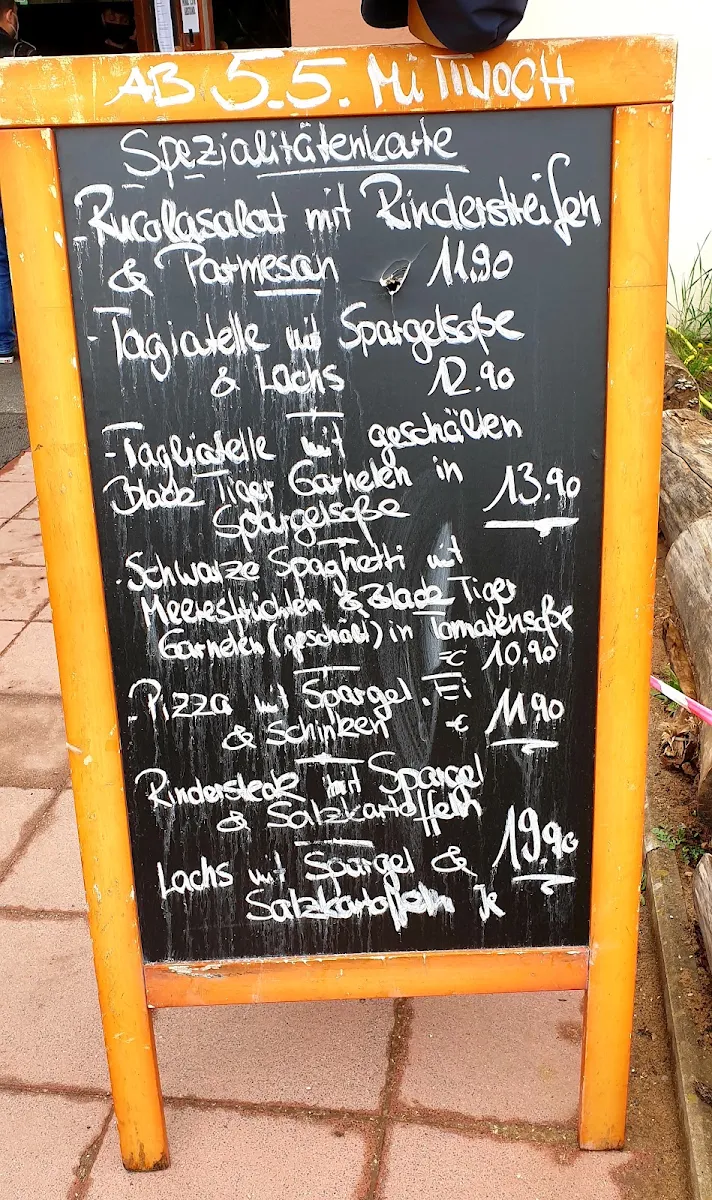 AB 5.5. MITTWOCH
Spezialitätenkarte
-Rucolasalat mit Rinderstreifen
& Parmesan 11.90
-Tagiatelle mit Spargelsoße
& Lachs 12.90
-Tagliatelle mit geschälten
Black Tiger Garnelen in
Spargelsoße 13.90
-Schwarze Spaghetti mit
Meeresfrüchten & Black Tiger
Garnelen (geschält) in Tomatensoße
€ 10.90
-Pizza mit Spargel, Ei
& Schinken € 11.90
Rindersteak mit Spargel
& Salzkartoffeln
Lachs mit Spargel & 19.90
Salzkartoffeln Je